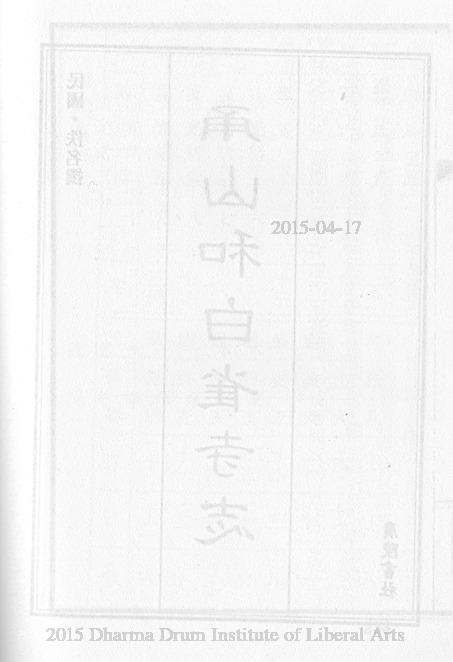 民國·佚名撰
甬山和白雀寺志
廣陵書社
2015-04-17
2015 Dharma Drum Institute of Liberal Arts